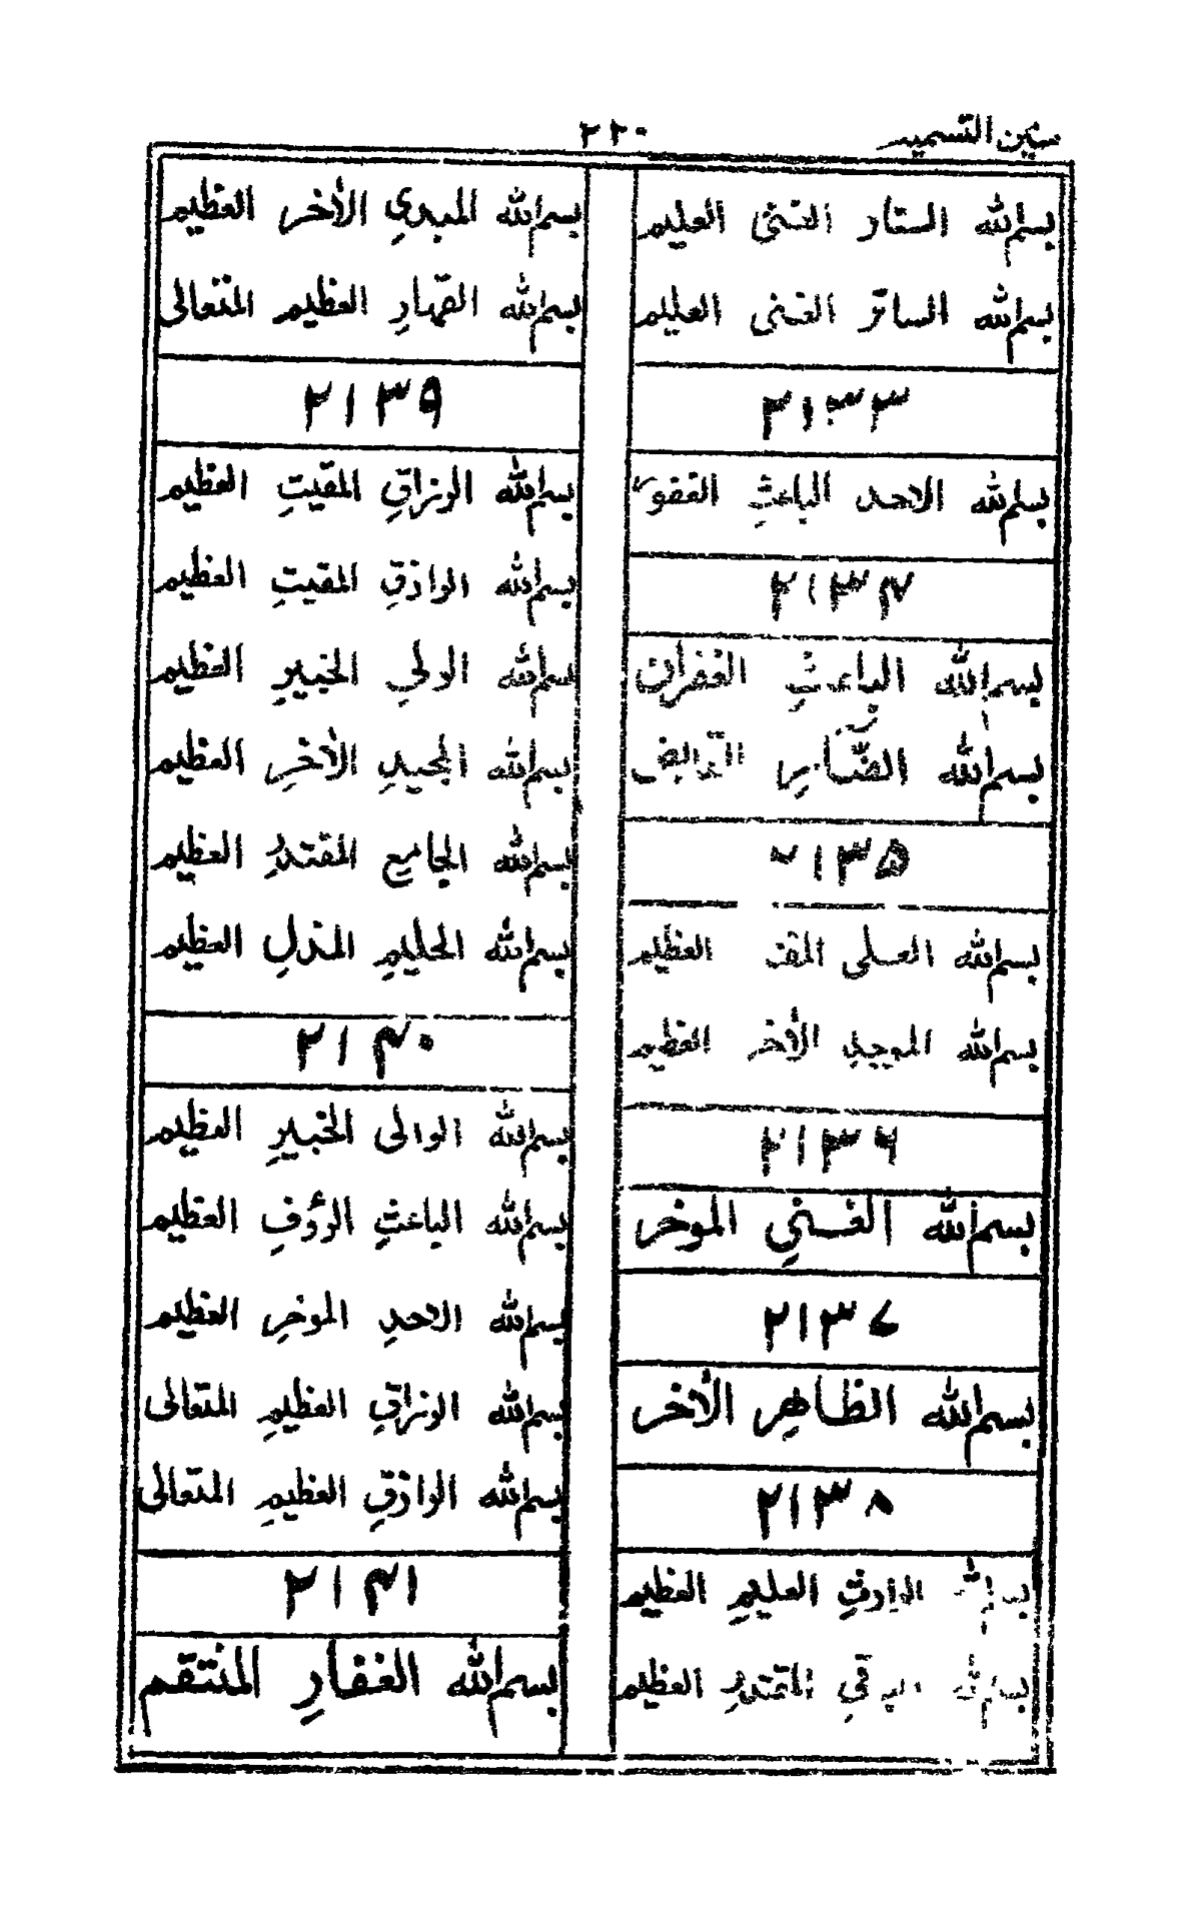 ٢٢٠
بسم الله الستار الغنی العلیم
بسم الله الساتر الغنی العلیم
٢١٣٣
بسم الله الاحد الباعثِ الغفور
٢١٣۴
بسم الله الباعثِ الغفران
بسم الله الضّابرِ القابض
٢١٣۵
بسم الله العلی العظیم
بسم الله الموجدِ الأخر العظیم
٢١٣۶
بسم الله الغنیِ الموخر
٢١٣٧
بسم الله الظاهرِ الأخر
٢١٣٨
العلیمِ العظیم
المقتدرِ العظیم
بسم الله المبدیِ الأخر العظیم
بسم الله القهارِ العظیم المتعالی
٢١٣٩
بسم الله الرزاقِ المقیتِ العظیم
بسم الله الرازقِ المقیتِ العظیم
بسم الله الولیِ الخبیرِ العظیم
بسم الله المجیدِ الأخرِ العظیم
بسم الله الجامعِ المقتدرِ العظیم
بسم الله الحلیمِ المذلِ العظیم
٢١۴٠
بسم الله الوالی الخبیرِ العظیم
بسم الله الباعثِ الرؤفِ العظیم
بسم الله الاحدِ الموخرِ العظیم
بسم الله الرزاقِ العظیمِ المتعالی
بسم الله الرازقِ العظیمِ المتعالی
٢١۴١
بسم الله الغفارِ المنتقم